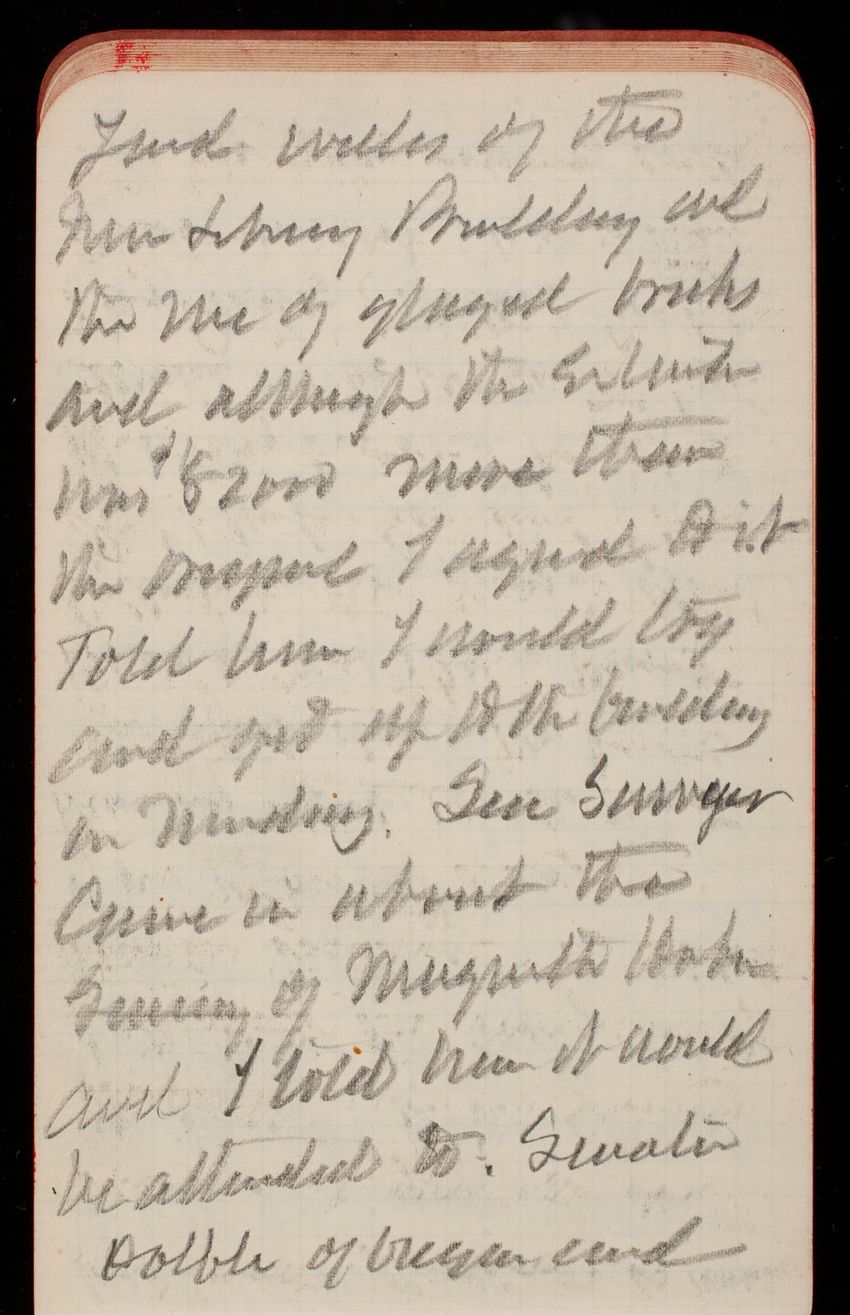 walls of the
new Library Building and
the use of glazed bricks
and although the Estimate
was $ more than
the original I agreed to it
Told him I would try
and get up to the building
on Monday. Gen Sawyer
Came in about the
of
and I told him it would
be attended to. Senator
Dolph of Oregon and